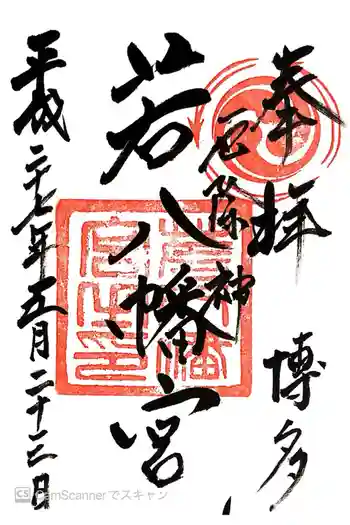 奉拝
博多
厄除神
若八幡宮
平成二十七年五月二十三日
若八幡宮之印
CS CamScannerでスキャン